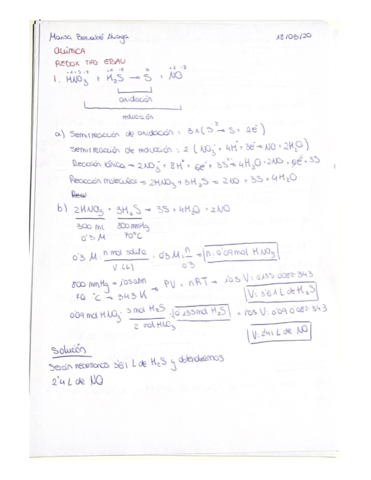 Marisa 13/05/20
QUÍMICA
REDOX TIPO EBAU
+1 +5 -2 +1 -2 0 +2 -2
1. HNO3 + H2S → S + NO
oxidación
reducción
a) Semirreacción de oxidación = 3x(S2- → S + 2e-)
Semirreacción de reducción = 2(NO3- + 4H+ + 3e- → NO + 2H2O)
Reacción iónica = 2NO3- + 8H+ + 6e- + 3S2- → 4H2O + 2NO + 6e- + 3S
Reacción molecular = 2HNO3 + 3H2S → 2NO + 3S + 4H2O
b) 2HNO3 + 3H2S → 3S + 4H2O + 2NO
300 mL 800 mmHg
0'3 M 70ºC
0'3 M = n mol soluto / V (L) = 0'3 M = n / 0'3 → n = 0'09 mol HNO3
800 mmHg = 1'05 atm
70 ºC → 343 K
PV = nRT → 1'05 · V = 0'135 · 0'082 · 343
V = 3'61 L de H2S
0'09 mol HNO3 · 3 mol H2S / 2 mol HNO3 = 0'135 mol H2S
1'05 · V = 0'09 · 0'082 · 343
V = 2'41 L de NO
Solución
Serán necesarios 3'61 L de H2S y obtendremos
2'4 L de NO